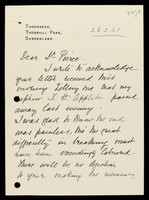 THORNDENE,
THORNHILL PARK,
SUNDERLAND.
26.2.21
Dear Dr Pierce.
I write to acknowledge
your letter received this
morning telling me that my
nephew J. H. Appleton passed
away last evening.
I was glad to know his end
was painless, tho' his great
difficulty in breathing must
have been exceedingly laboured.
There will be no objection
to your making the necessary